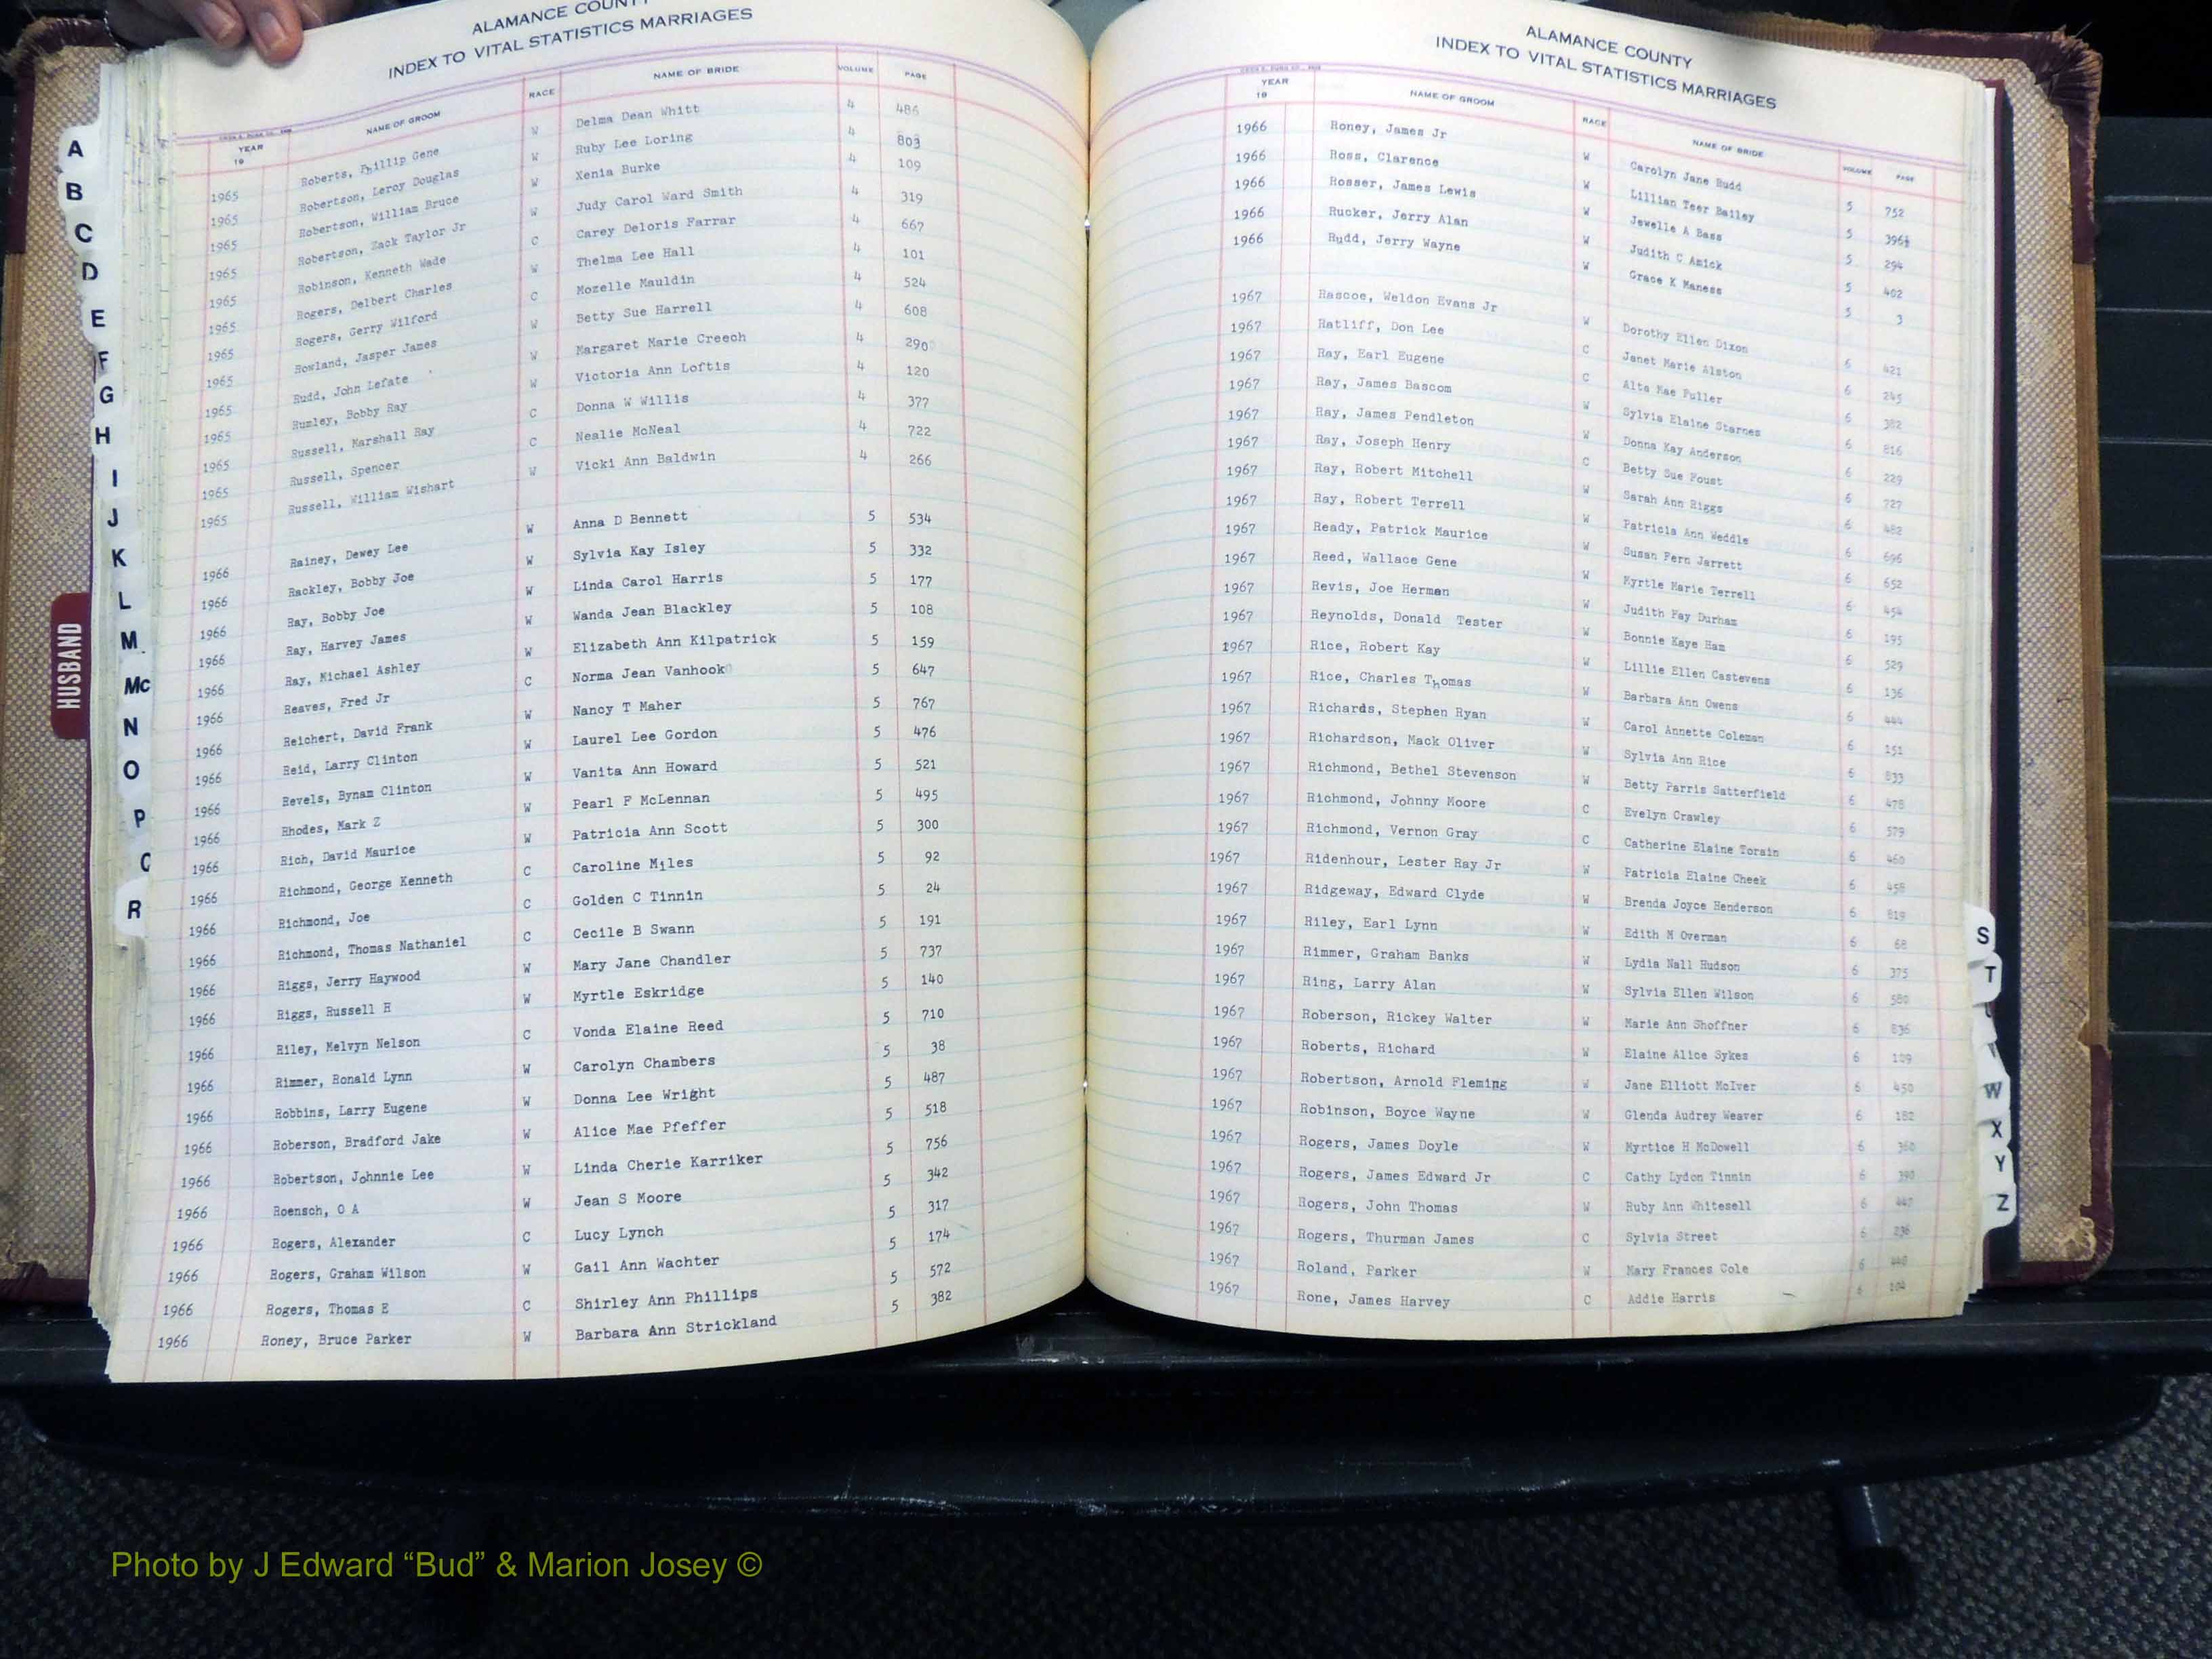 ALAMANCE COUNTY
INDEX TO VITAL STATISTICS MARRIAGES
YEAR 19 NAME OF GROOM RACE NAME OF BRIDE VOLUME PAGE
1965 Roberts, Phillip Gene W Delma Dean Whitt 4 486
1965 Robertson, Leroy Douglas W Ruby Lee Loring 4 803
1965 Robertson, William Bruce W Xenia Burke 4 109
1965 Robertson, Zack Taylor Jr W Judy Carol Ward Smith 4 319
1965 Robinson, Kenneth Wade C Carey Deloris Farrar 4 667
1965 Rogers, Delbert Charles W Thelma Lee Hall 4 101
1965 Rogers, Gerry Wilford C Mozelle Mauldin 4 524
1965 Rowland, Jasper James W Betty Sue Harrell 4 608
1965 Rudd, John Lefate W Margaret Marie Creech 4 290
1965 Rumley, Bobby Ray W Victoria Ann Loftis 4 120
1965 Russell, Marshall Ray C Donna W Willis 4 377
1965 Russell, Spencer C Nealie McNeal 4 722
1965 Russell, William Wishart W Vicki Ann Baldwin 4 266
1966 Rainey, Dewey Lee W Anna D Bennett 5 534
1966 Rackley, Bobby Joe W Sylvia Kay Isley 5 332
1966 Ray, Bobby Joe W Linda Carol Harris 5 177
1966 Ray, Harvey James W Wanda Jean Blackley 5 108
1966 Ray, Michael Ashley W Elizabeth Ann Kilpatrick 5 159
1966 Reaves, Fred Jr C Norma Jean Vanhook 5 647
1966 Reichert, David Frank W Nancy T Maher 5 767
1966 Reid, Larry Clinton W Laurel Lee Gordon 5 476
1966 Revels, Bynam Clinton W Vanita Ann Howard 5 521
1966 Rhodes, Mark Z W Pearl F McLennan 5 495
1966 Rich, David Maurice W Patricia Ann Scott 5 300
1966 Richmond, George Kenneth C Caroline Miles 5 92
1966 Richmond, Joe C Golden C Tinnin 5 24
1966 Richmond, Thomas Nathaniel C Cecile B Swann 5 191
1966 Riggs, Jerry Haywood W Mary Jane Chandler 5 737
1966 Riggs, Russell H W Myrtle Eskridge 5 140
1966 Riley, Melvyn Nelson C Vonda Elaine Reed 5 710
1966 Rimmer, Ronald Lynn W Carolyn Chambers 5 38
1966 Robbins, Larry Eugene W Donna Lee Wright 5 487
1966 Roberson, Bradford Jake W Alice Mae Pfeffer 5 518
1966 Robertson, Johnnie Lee W Linda Cherie Karriker 5 756
1966 Roensch, O A W Jean S Moore 5 342
1966 Rogers, Alexander C Lucy Lynch 5 317
1966 Rogers, Graham Wilson W Gail Ann Wachter 5 174
1966 Rogers, Thomas E C Shirley Ann Phillips 5 572
1966 Roney, Bruce Parker W Barbara Ann Strickland 5 382
A
B
C
D
E
F
G
H
I
J
K
L
M
Mc
N
O
P
R
HUSBAND
ALAMANCE COUNTY
INDEX TO VITAL STATISTICS MARRIAGES
YEAR 19 NAME OF GROOM RACE NAME OF BRIDE VOLUME PAGE
1966 Roney, James Jr W Carolyn Jane Rudd 5 752
1966 Ross, Clarence W Lillian Teer Bailey 5 396½
1966 Rosser, James Lewis W Jewelle A Bass 5 294
1966 Rucker, Jerry Alan W Judith C Amick 5 402
1966 Rudd, Jerry Wayne W Grace K Maness 5 3
1967 Rascoe, Weldon Evans Jr W Dorothy Ellen Dixon 6 421
1967 Ratliff, Don Lee C Janet Marie Alston 6 245
1967 Ray, Earl Eugene C Alta Mae Fuller 6 382
1967 Ray, James Bascom W Sylvia Elaine Starnes 6 816
1967 Ray, James Pendleton W Donna Kay Anderson 6 229
1967 Ray, Joseph Henry C Betty Sue Foust 6 727
1967 Ray, Robert Mitchell W Sarah Ann Riggs 6 482
1967 Ray, Robert Terrell W Patricia Ann Weddle 6 696
1967 Ready, Patrick Maurice W Susan Fern Jarrett 6 652
1967 Reed, Wallace Gene W Myrtle Marie Terrell 6 454
1967 Revis, Joe Herman W Judith Fay Durham 6 195
1967 Reynolds, Donald Tester W Bonnie Kaye Ham 6 529
1967 Rice, Robert Kay W Lillie Ellen Castevens 6 136
1967 Rice, Charles Thomas W Barbara Ann Owens 6 444
1967 Richards, Stephen Ryan W Carol Annette Coleman 6 151
1967 Richardson, Mack Oliver W Sylvia Ann Rice 6 833
1967 Richmond, Bethel Stevenson W Betty Parris Satterfield 6 478
1967 Richmond, Johnny Moore C Evelyn Crawley 6 579
1967 Richmond, Vernon Gray C Catherine Elaine Torain 6 460
1967 Ridenhour, Lester Ray Jr W Patricia Elaine Cheek 6 458
1967 Ridgeway, Edward Clyde W Brenda Joyce Henderson 6 819
1967 Riley, Earl Lynn W Edith M Overman 6 68
1967 Rimmer, Graham Banks W Lydia Nall Hudson 6 375
1967 Ring, Larry Alan W Sylvia Ellen Wilson 6 580
1967 Roberson, Rickey Walter W Marie Ann Shoffner 6 836
1967 Roberts, Richard W Elaine Alice Sykes 6 109
1967 Robertson, Arnold Fleming W Jane Elliott McIver 6 450
1967 Robinson, Boyce Wayne W Glenda Audrey Weaver 6 182
1967 Rogers, James Doyle W Myrtice H McDowell 6 360
1967 Rogers, James Edward Jr C Cathy Lydon Tinnin 6 390
1967 Rogers, John Thomas W Ruby Ann Whitesell 6 447
1967 Rogers, Thurman James C Sylvia Street 6 236
1967 Roland, Parker W Mary Frances Cole 6
1967 Rone, James Harvey C Addie Harris 6 104
S
T
W
X
Y
Z
Photo by J Edward “Bud” & Marion Josey ©